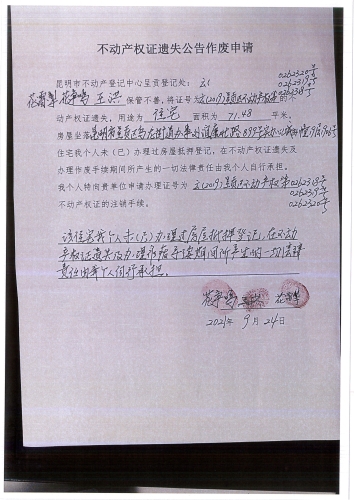 不动产权证遗失公告作废申请
昆明市不动产登记中心呈贡登记处：
0262320号
0262319号
0262318号
王洪 保管不善，将证号为云(2019)呈贡区不动产权第 的不
动产权证遗失，用途为 住宅 面积为 71.48 平米，
房屋坐落昆明市呈贡区
住宅我个人未（已）办理过房屋抵押登记，在不动产权遗失及
办理作废手续期间所产生的一切法律责任由我个人自行承担。
我个人特向贵单位申请办理证号为云(2019)呈贡区不动产权第0262318号
0262319号
0262320号
不动产权证的注销手续。
该住宅我个人未（已）办理过房屋抵押登记，在不动
产权证遗失及办理作废手续期间所产生的一切法律
责任由我个人自行承担。
2021年 9 月 24 日